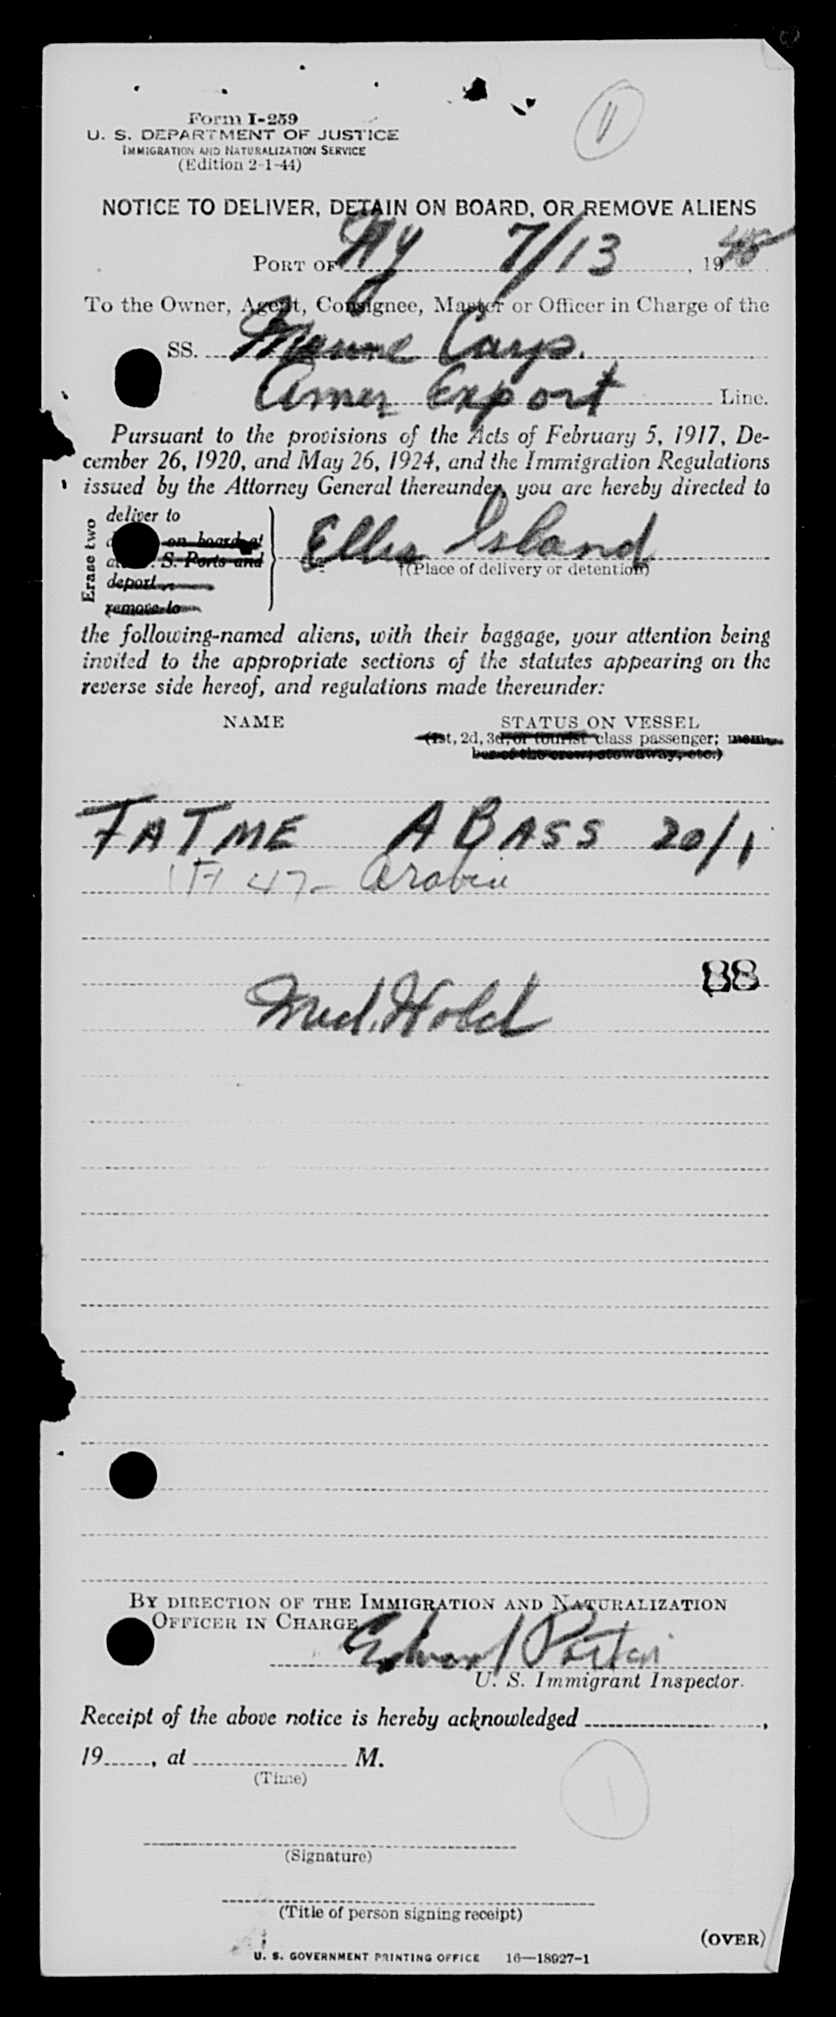 Form I-259
U. S. DEPARTMENT OF JUSTICE
IMMIGRATION AND NATURALIZATION SERVICE
(Edition 2-1-44)
11
NOTICE TO DELIVER, DETAIN ON BOARD, OR REMOVE ALIENS
PORT OF NY 7/13, 19
To the Owner, Agent, Consignee, Master or Officer in Charge of the
SS. Marine Carp.
Amer Export Line.
Pursuant to the provisions of the Acts of February 5, 1917, De-
cember 26, 1920, and May 26, 1924, and the Immigration Regulations
issued by the Attorney General thereunder, you are hereby directed to
Erase two
deliver to
on board at
S. Ports and
deport
remove to
Ellis Island
(Place of delivery or detention)
the following-named aliens, with their baggage, your attention being
invited to the appropriate sections of the statutes appearing on the
reverse side hereof, and regulations made thereunder:
NAME STATUS ON VESSEL
(1st, 2d, 3d, or tourist class passenger; mem-
ber of the crew; stowaway, etc.)
FATME ABASS 20/1
F 47- Arabia
88
Med. Hold
BY DIRECTION OF THE IMMIGRATION AND NATURALIZATION
OFFICER IN CHARGE
Edward
U. S. Immigrant Inspector.
Receipt of the above notice is hereby acknowledged ,
19 , at M.
(Time)
(Signature)
(Title of person signing receipt)
(OVER)
U. S. GOVERNMENT PRINTING OFFICE 16—18927-1